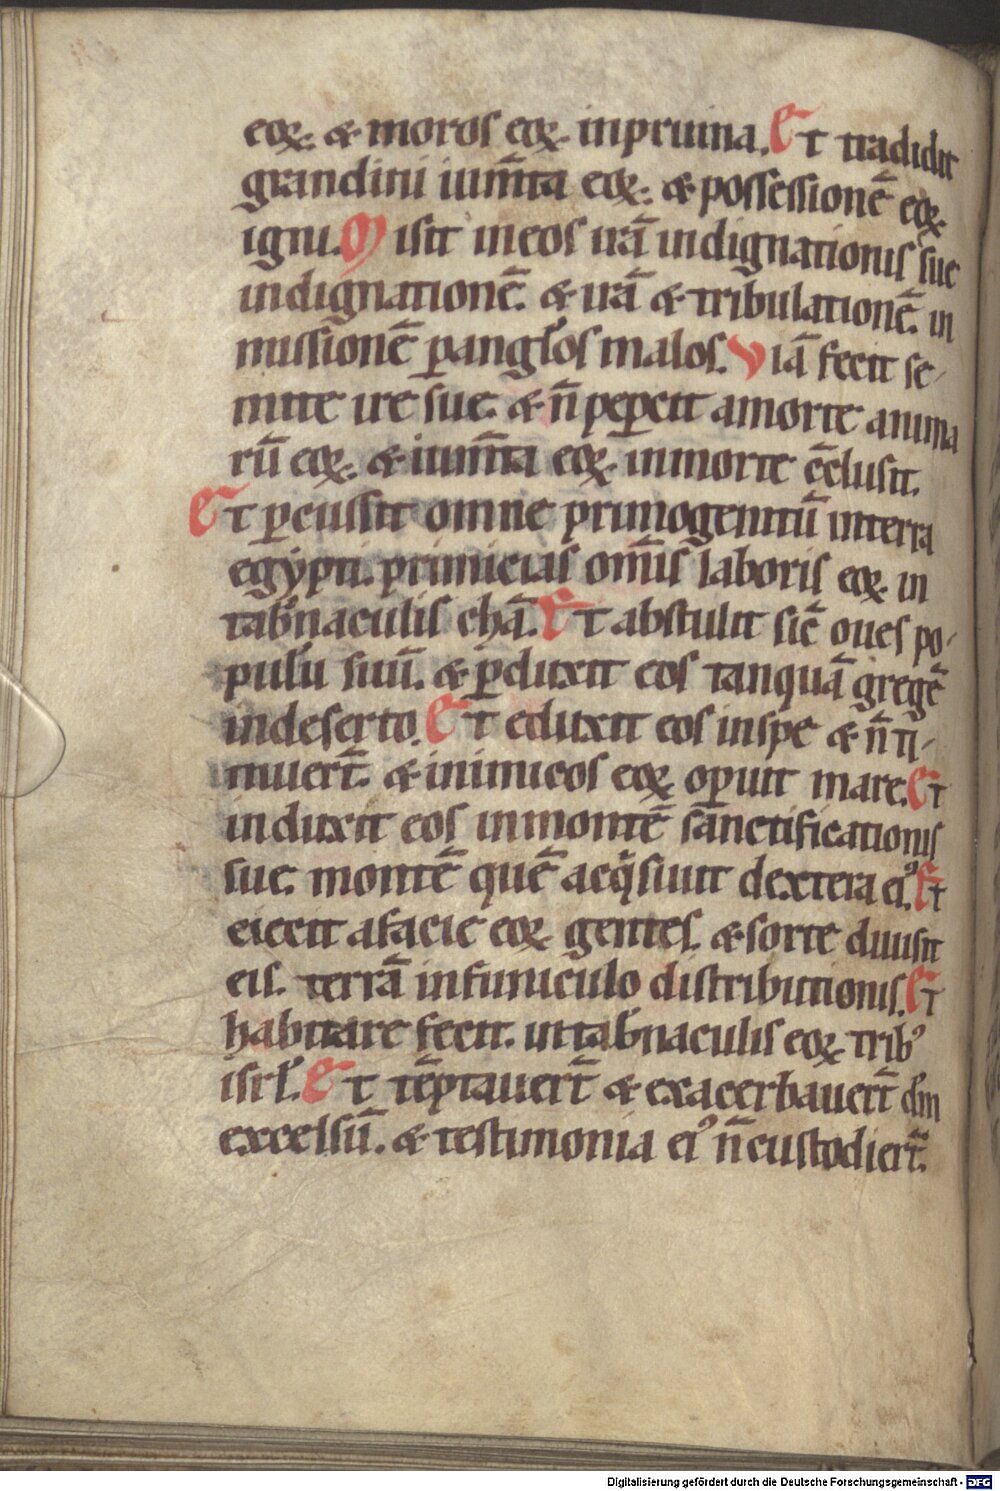 eoꝝ. & moros eoꝝ. inpruina. Et tradidit
grandini ium̄ta eoꝝ. & possessionē eoꝝ.
igni. Misit ineos irā indignationis sue
indignationē. & irā & tribulationē. in
missionē ꝑangl̓os malos. Viā fecit se
mite ire sue. & n̄ peꝑcit amorte anima
rū eoꝝ. & ium̄ta eoꝝ. inmorte c̄clusit.
Et ꝑcussit omne primogenitū interra
egypti. primicias om̄is laboris eoꝝ. in
tab̓naculis chā. Et abstulit sic̄ oues po
pulū suū. & ꝑduxit eos tanquā gregē
indeserto. Et eduxit eos inspe & n̄ ti
muert̄. & inimicos eoꝝ. oꝑuit mare. Et
induxit eos inmontē sanctificationis
sue. montē quē acq̓siuit dextera ei᾿. Et
eiecit afacie eoꝝ. gentes. & sorte diuisit
eis. terrā infuniculo distributionis. Et
habitare fecit. intab̓naculis eoꝝ. trib᾿
isrl̓. Et tēptauert̄ & exacerbauert̄ dm̄
excelsū. & testimonia ei᾿ n̄ custodiert̄.
Digitalisierung gefördert durch die Deutsche Forschungsgemeinschaft - DFG